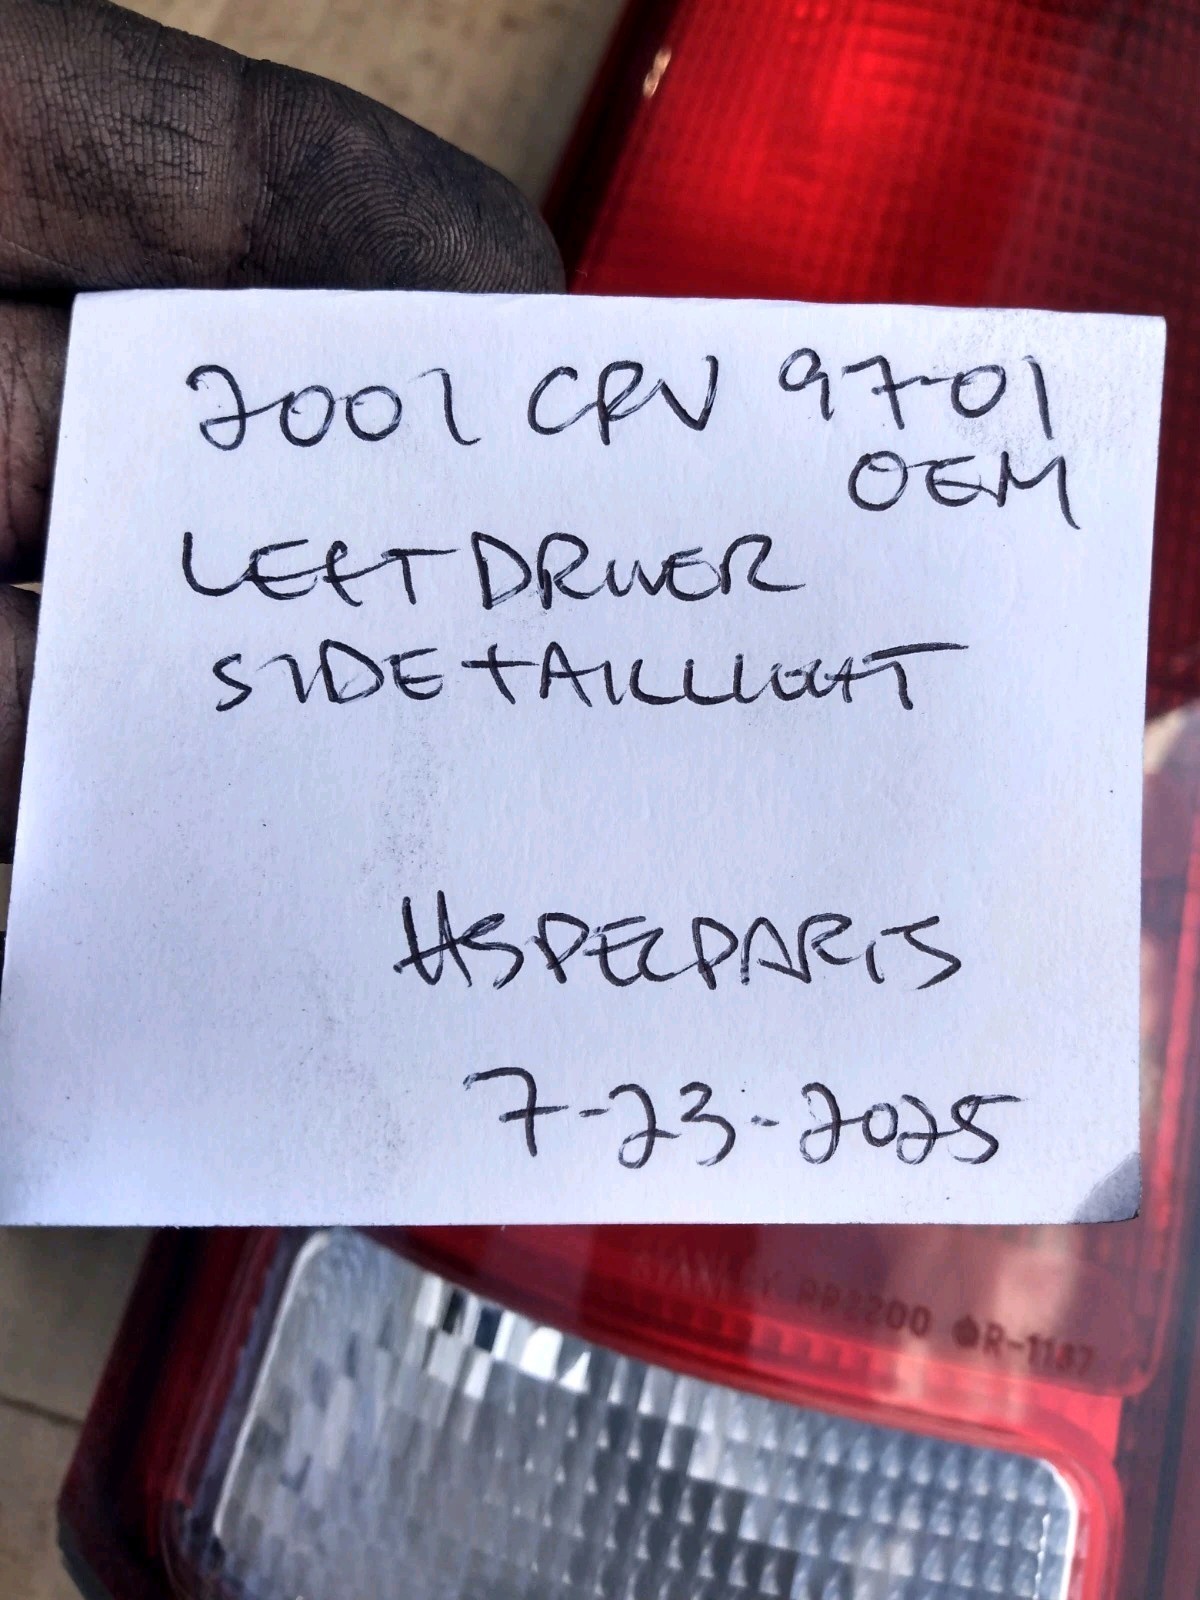 2001 CRV 97-01
OEM
LEFT DRIVER
SIDE TAILLIGHT
HSPECPARTS
7-23-2025
STANLEY 062200 R-1137